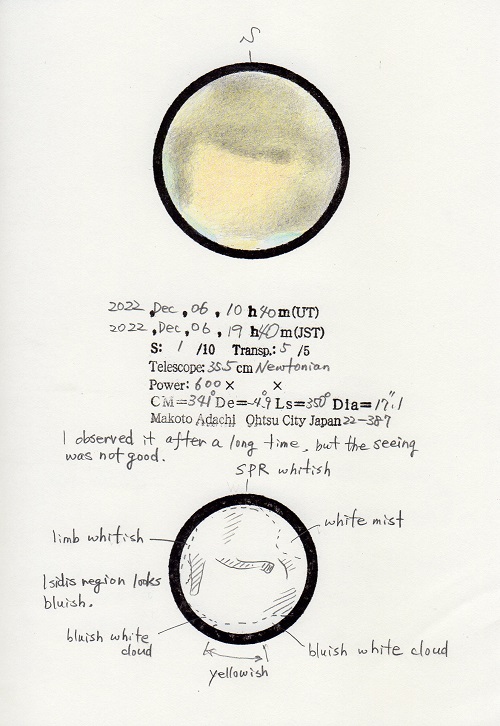 S
2022, Dec, 06, 10 h 40 m (UT)
2022, Dec, 06, 19 h 40 m (JST)
S: 1 /10 Transp.: 5 /5
Telescope: 35.5 cm Newtonian
Power: 600 × ×
CM=341° De=-4.9° Ls=350° Dia=17".1
Makoto Adachi Ohtsu City Japan 22-387
I observed it after a long time, but the seeing
was not good.
SPR whitish
white mist
limb whitish
Isidis region looks
bluish.
bluish white
cloud
bluish white cloud
yellowish